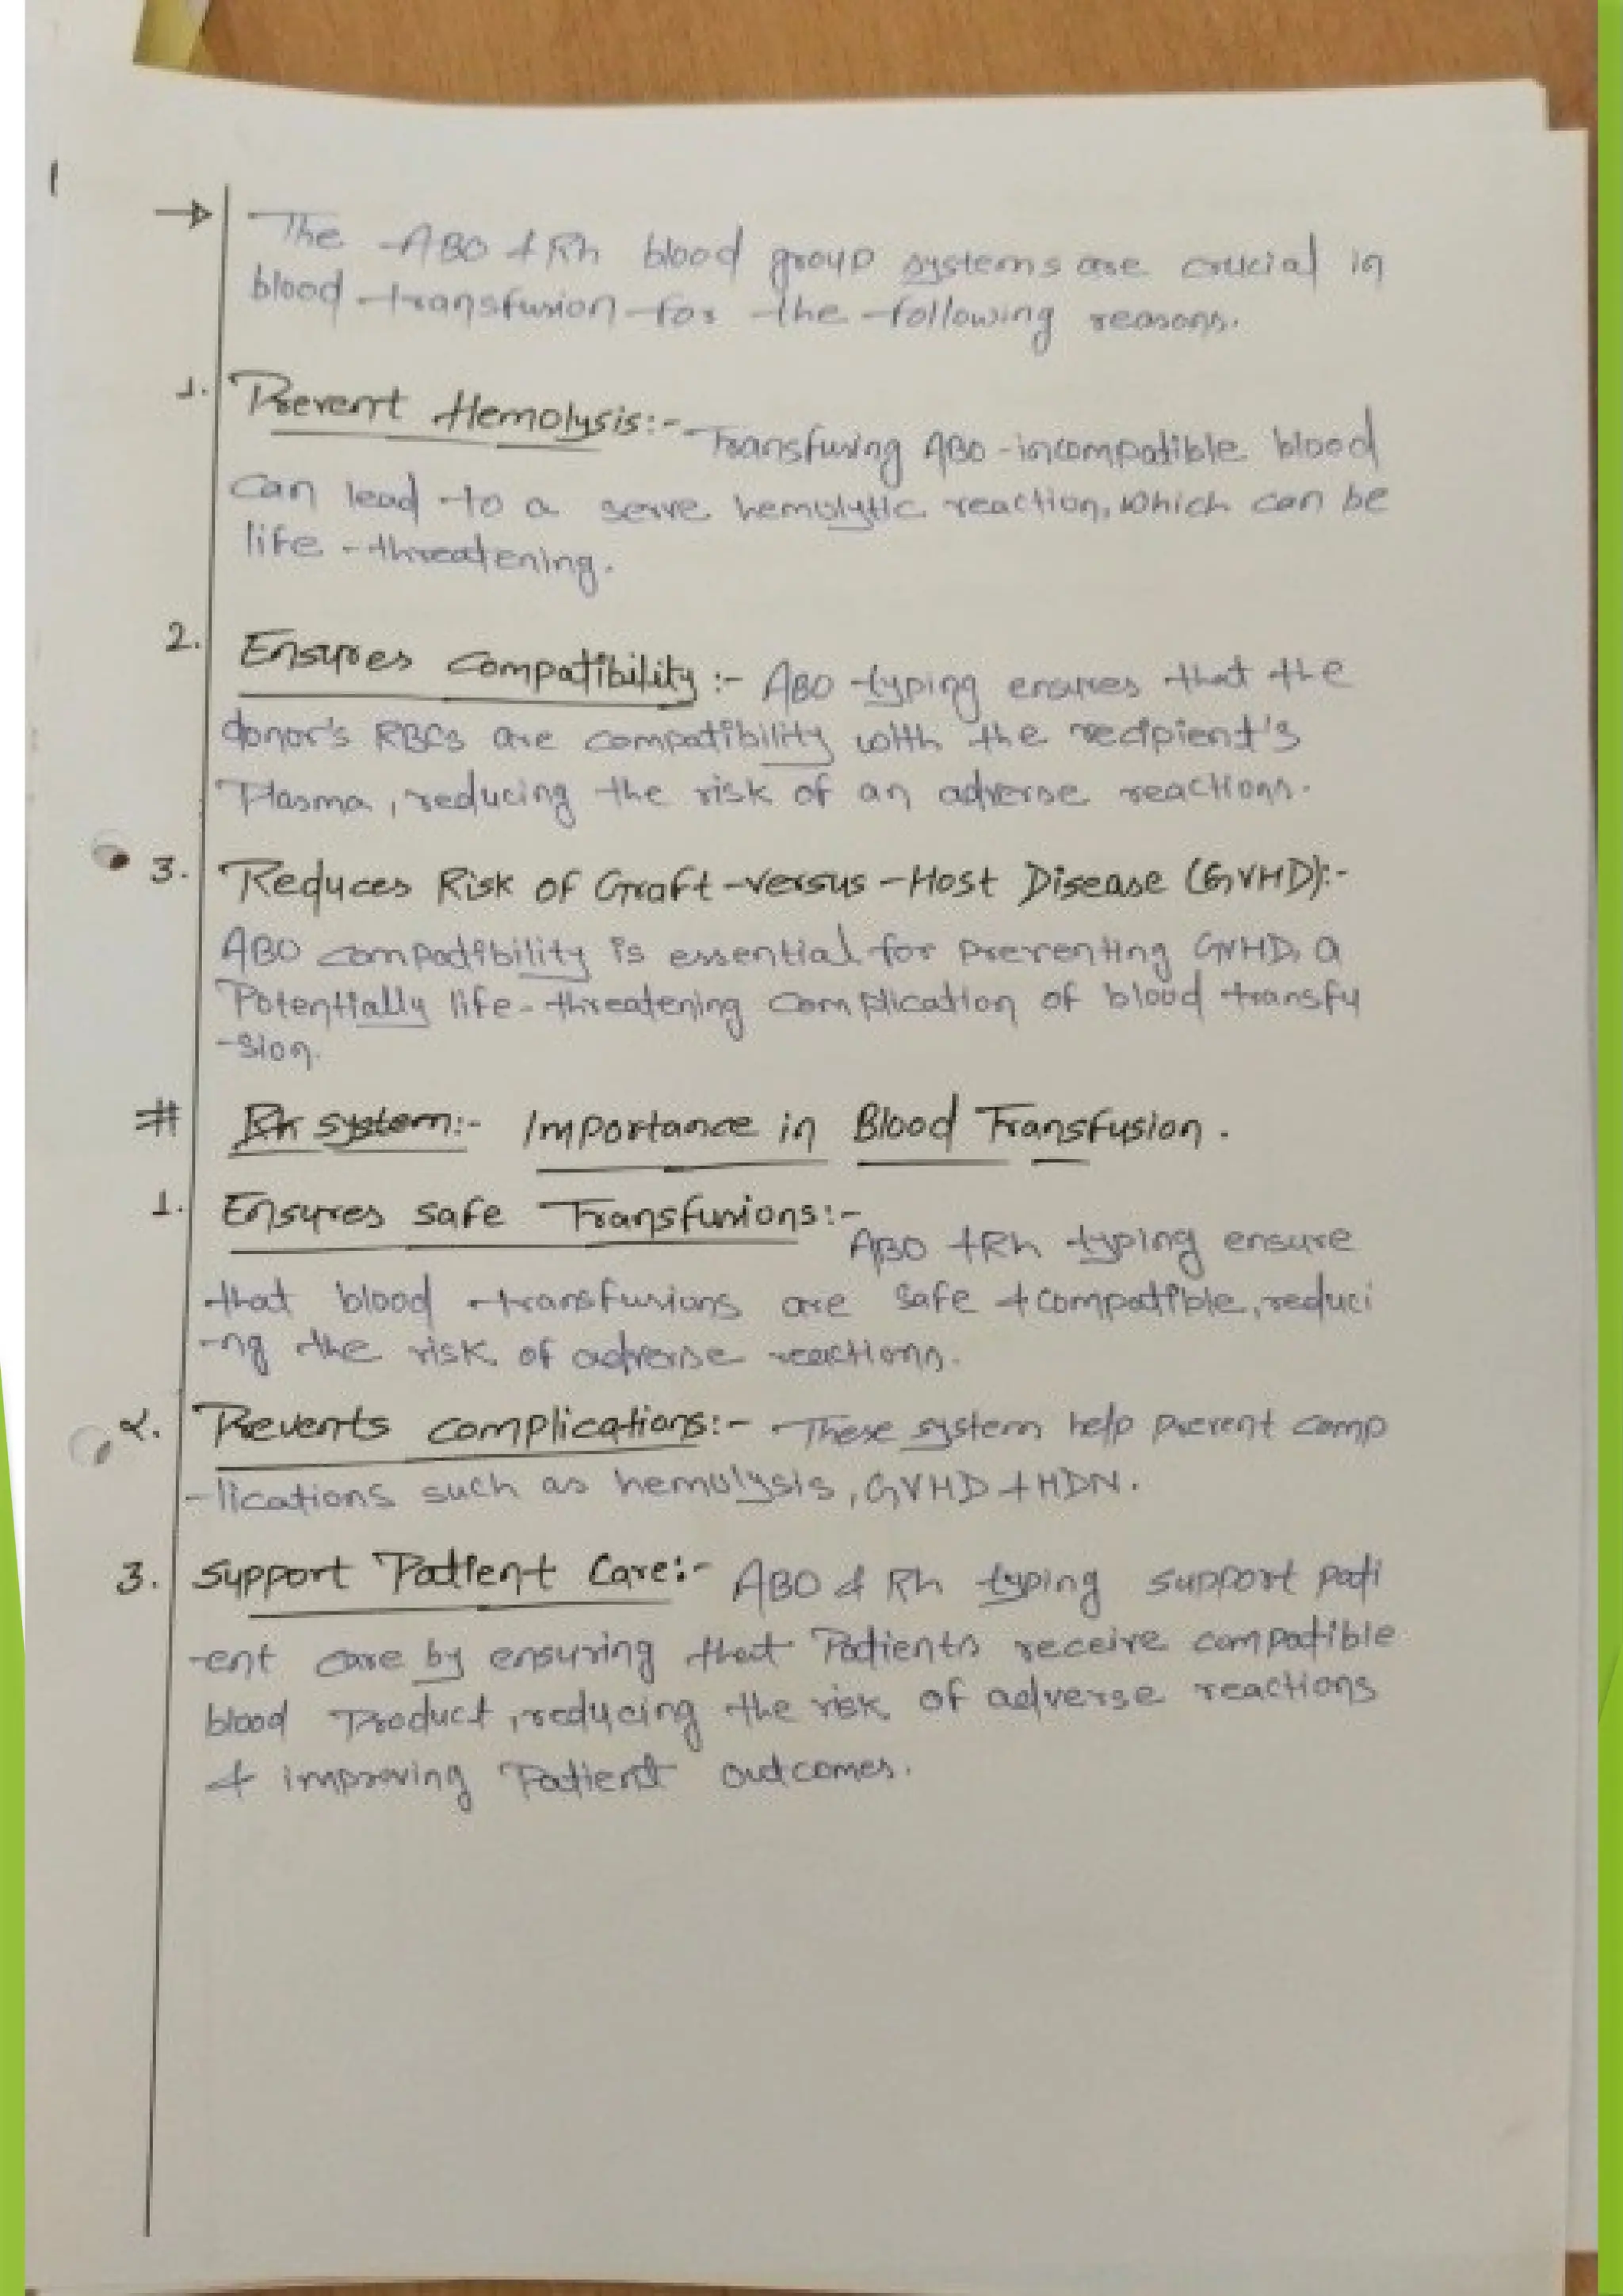 → The ABO & Rh blood group systems are crucial in
blood transfusion for the following reasons.
1. Prevent Hemolysis:- Transfusing ABO-incompatible blood
can lead to a serve hemolytic reaction, which can be
life-threatening.
2. Ensures compatibility :- ABO typing ensures that the
donor's RBCs are compatibility with the recipient's
Plasma, reducing the risk of an adverse reactions.
3. Reduces Risk of Graft-versus-Host Disease (GVHD):-
ABO compatibility is essential for preventing GVHD, a
Potentially life-threatening complication of blood transfu
-sion.
# Rh system:- Importance in Blood Transfusion.
1. Ensures safe Transfusions:- ABO & Rh typing ensure
that blood transfusions are safe & compatible, reduci
-ng the risk of adverse reactions.
2. Prevents complications:- These system help prevent comp
-lications such as hemolysis, GVHD & HDN.
3. Support Patient Care:- ABO & Rh typing support pati
-ent care by ensuring that Patients receive compatible
blood Product, reducing the risk of adverse reactions
& improving Patient outcomes.